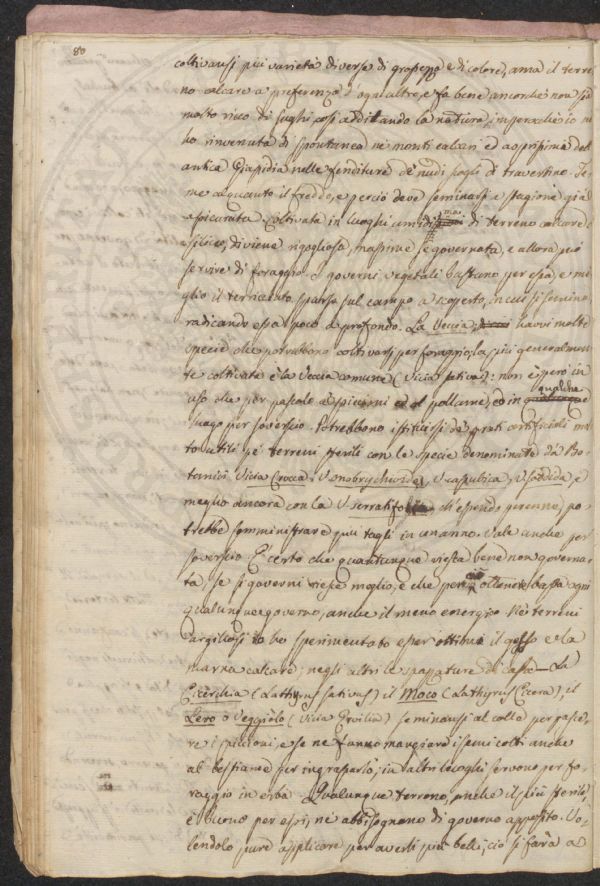 80
coltivansi più varietà diverse di grossezza e di colore, ama il terre
no calcare a preferenza d'ogni altro, e fa bene ancorchè non sia
molto ricco di sughi, così additando la natura, imperochè io
ho rinvenuta di spontanea ne' monti calcari ed asprissimi dell'
antica Giapidia nelle fenditure de' nudi scogli di travertino. Te
me alquanto il freddo, e perciò deve seminarsi a stagione già
assicurata. Coltivata in luoghi umidi ma di terreno calcare
siliceo, diviene rigogliosa, massime se governata, e allora può
servire di foraggio. I governi vegetali bastano per essa, e me
glio il terriccio sparso sul campo a scoperto, in cui si semina,
radicando essa poco a profondo. La Veccia, havvi molte
specie che potrebbono coltivarsi per foraggio; la più generalmen
te coltivata è la Veccia comune (Vicia sativa): non è però in
uso che per pascolo a' piccioni ed al pollame, ed in qualche
luogo per soverscio. Potrebbono istituirsi de' prati artificiali
to utili pe' terreni sterili con le specie denominate da' Bo
tanici Vicia Cracca, V. onobrychioides, V. cassubica, e
meglio ancora con la V. serratifolia ch'essendo perenne, po
trebbe somministrare più tagli in un anno. Vale anche per
soverscio. È certo che quantunque riesca bene non governa
ta, se si governi riesce meglio, e che per ciò ottenere basta ogni
qualunque governo, anche il meno energico. Ne' terreni
argillosi io ho sperimentato esser ottimi il gesso e la
marna calcare; negli altri le spazzature di casa. La
Cicerchia (Lathyrus sativus) il Moco (Lathyrus Cicera), il
Lero o Veggiolo (Vicia Ervilia) seminansi al colle per pasce
re i piccioni, e se ne fanno mangiare i semi cotti anche
al bestiame per ingrassarlo; in altri luoghi servono per fo
raggio in erba. Qualunque terreno, anche il più sterile,
è buono per essi, nè abbisognano di governo apposito. Vo
lendolo pure applicare per averli più belli, ciò si farà a